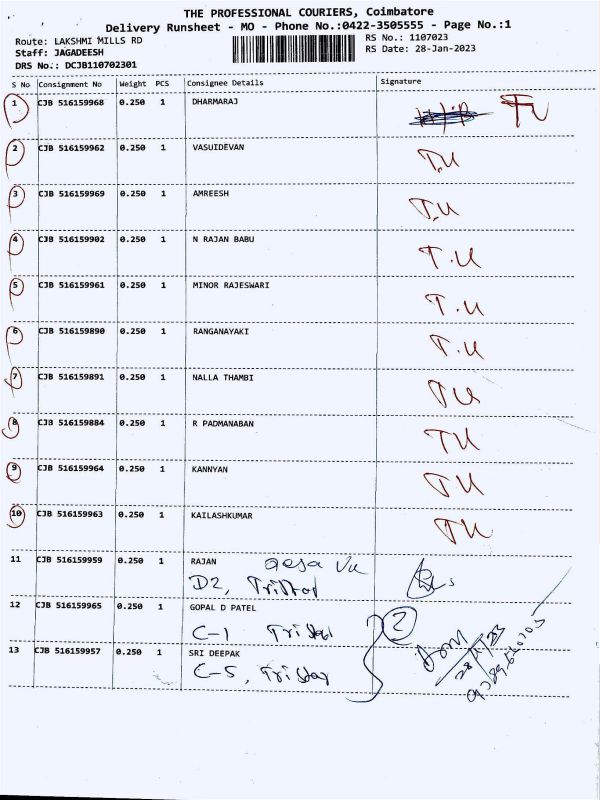 THE PROFESSIONAL COURIERS, Coimbatore
Delivery Runsheet - MO - Phone No.:0422-3505555 - Page No.:1
Route: LAKSHMI MILLS RD
RS No.: 1107023
Staff: JAGADEESH
RS Date: 28-Jan-2023
DRS No.: DCJB110702301
S No Consignment No Weight PCS Consignee Details Signature
1 CJB 516159968 0.250 1 DHARMARAJ TU
2 CJB 516159962 0.250 1 VASUIDEVAN T.U
3 CJB 516159969 0.250 1 AMREESH T.U
4 CJB 516159902 0.250 1 N RAJAN BABU T.U
5 CJB 516159961 0.250 1 MINOR RAJESWARI T.U
6 CJB 516159890 0.250 1 RANGANAYAKI T.U
7 CJB 516159891 0.250 1 NALLA THAMBI TU
8 CJB 516159884 0.250 1 R PADMANABAN TU
9 CJB 516159964 0.250 1 KANNYAN TU
10 CJB 516159963 0.250 1 KAILASHKUMAR TU
11 CJB 516159959 0.250 1 RAJAN
D2, Tristar
12 CJB 516159965 0.250 1 GOPAL D PATEL
C-1 Tristar 2
13 CJB 516159957 0.250 1 SRI DEEPAK
C-5, Tristar
28/1/23